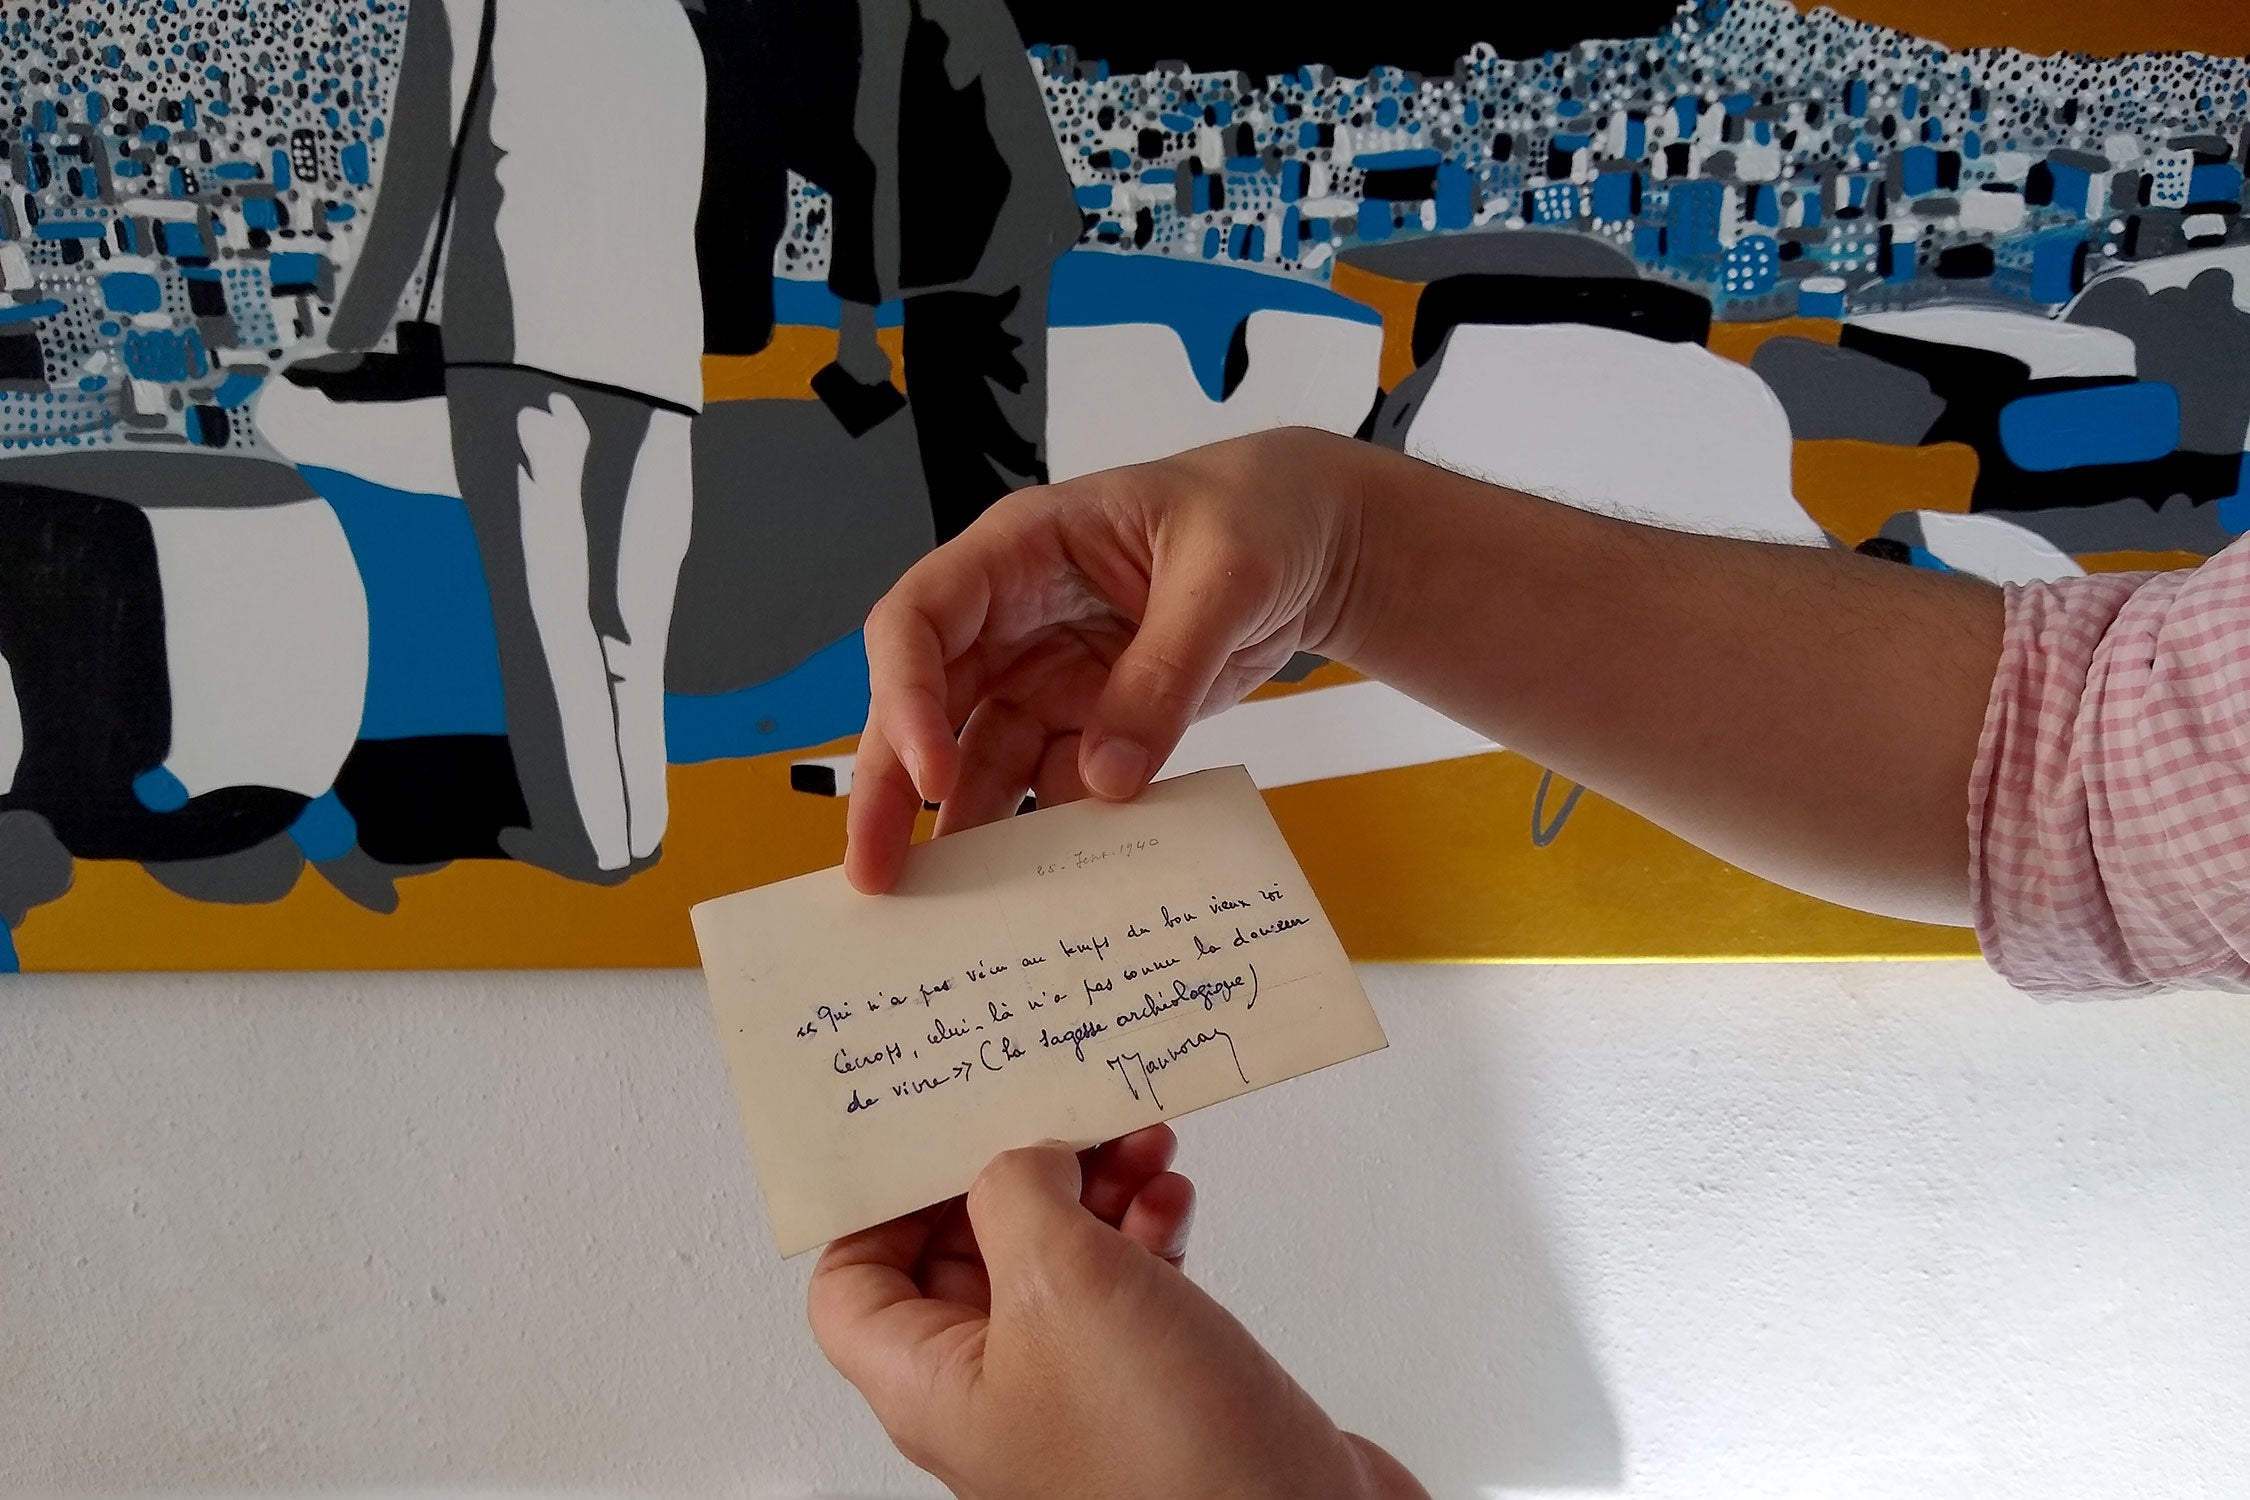 25. Sept. 1940
« Qui n'a pas vécu au temps du bon vieux roi
Cécrops, celui-là n'a pas connu la douceur
de vivre » (La sagesse archéologique)